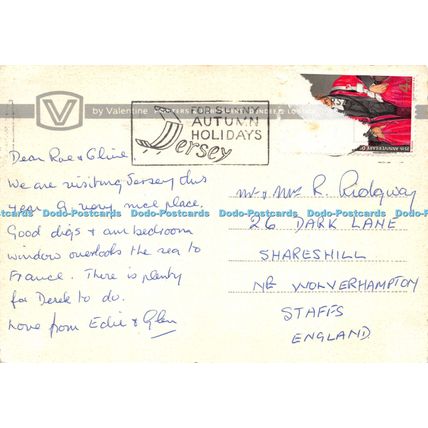 by Valentine
FOR SUNNY
AUTUMN
HOLIDAYS
Jersey
25TH ANNIVERSARY OF
Dear Rae & Clive
We are visiting Jersey this
year. A very nice place.
Good digs & our bedroom
window overlooks the sea to
France. There is plenty
for Derek to do.
Love from Edie & Glen
Mr & Mrs R. Ridgway
26 DARK LANE
SHARESHILL
NR WOLVERHAMPTON
STAFFS
ENGLAND
Dodo-Postcards Dodo-Postcards Dodo-Postcards Dodo-Postcards